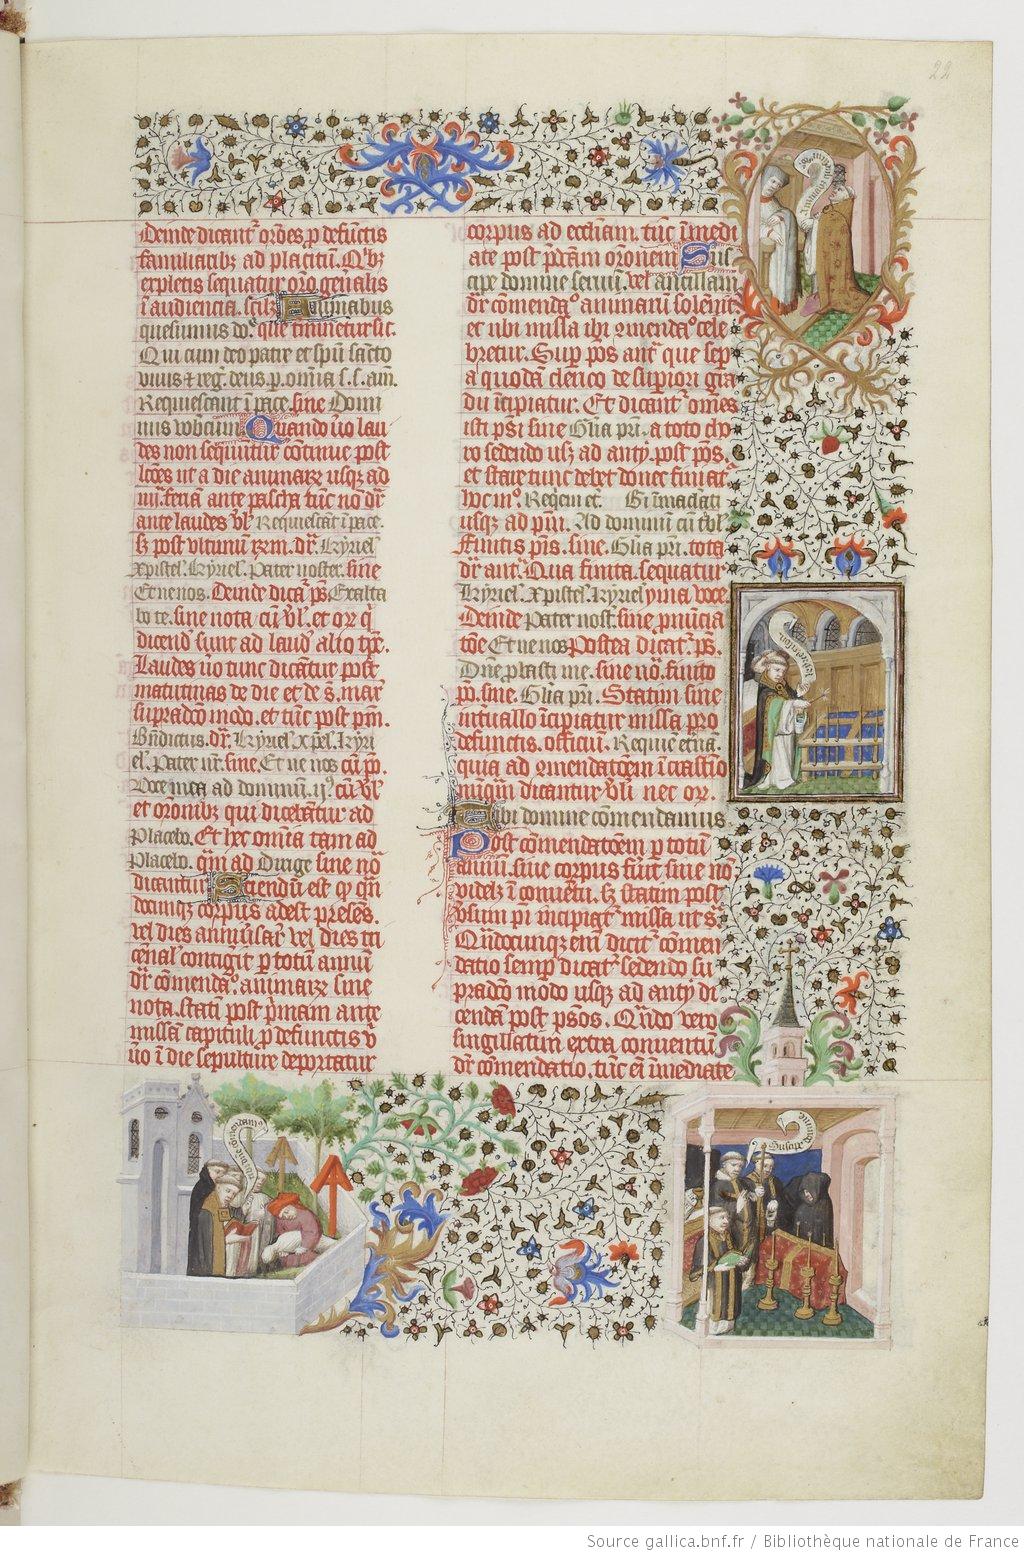 22
Deinde dicant᷑ or̃oes ꝓ defūctis
familiarib⁊ ad placitū. Qⁱb⁊
expletis sequatur or̃o gen̄alis
ī audiencia. scil⁊ Animabus
quesumus do.ᵉ que tr̄minetur sic.
Qui cum deo patre et spū sācto
viuis ⁊ reg̃. deus. p. om̄ia s. s. am̄.
Requiescant ī pace. sine Domi
nus vobcum Quando ūo lau
des non sequūtur cōtinue post
lc̄ōes ut a die animarꝝ usqꝫ ad
ante laudes v̄l. Requiescāt ī pace.
s⁊ post vltimū rꝝm. dr̄. Kyriel̄
xpistel̄. Kyriel̄. Pater noster. sine
Et ne nos. Deinde dicat᷑ ps̄. Exalta
bo te. sine nota cū v̄l. et or̄ q̄
dicend̄ sunt ad laud̄ alio tp̄e.
Laudes ūo tunc dicātur post
matutinas de die et de s̄. mar̄
supradc̄o modo. et tūc post pm̄.
Bn̄dictus. dr̄. Kyriel̄. xp̄el̄. Kyri
el̄. Pater nr̄. sine. Et ne nos cū ps̄.
Voce mea ad dominū. ij⁹ cū v̄l
et or̄onib⁊ qui dicebātur ad
Placebo. Et hec om̄ia tam ad
Placebo. qm̄ ad Dirige sine no
dicantur Sciendū est qꝫ qn̄
documqꝫ corpus adest presēs.
vel dies anniu̓sar̓ vel dies tri
cenal̄ contigīt ꝑ totū annū
dr̄ comendaᵒ. animarꝝ sine
nota. statī post primam ante
missam capituli ꝓ defunctis v̓
ūo ī die sepulture deportatur
corpus ad eccl̄iam. tūc īmedi
ate post p̄dc̄am or̄onem Sus
cipe domine seruū. vel ancillam
dr̄ comendaᵒ animarū solēnit᷑
et ubi missa ibi ꝯmendaᵒ cele
bretur. Sup̓ pōs ant᷑ que semp̓
a quodā clerico de sup̓iori gra
du īcipiatur. Et dicant᷑ omēs
isti ps̄i sine Gl̄ia pr̄i. a toto cho
ro sedendo usqꝫ ad anty. post ps̄os.
et stare tunc debet donec finiat᷑
usqꝫ ad pm̄. Ad dominū cū t̄bl
Finitis ps̄is. sine. Gl̄ia pr̄i. tota
dr̄ ant᷑. Qua finita. sequatur
Kyriel̄. Xpistel̄. Kyriel̄ yma voce.
Deinde Pater nost̄. sine pn̄ūcia
tōe Et ne nos Postea dicat᷑. ps̄.
Dn̄e plasti me. sine nō. finito
ps̄. sine. Gl̄ia pr̄i. Statim sine
intuallo īcipiatur missa pro
defunctis. officiū. Requiē et̄nā.
quia ad ꝯmendatōem ī crastīo
nūqm̄ dicantur v̄li nec or̄.
Tibi domine comendamus
Post comendatōem ꝑ totū
annū. siue corpus fūit siue nō
videl⁊ ī conuētu. s⁊ statim post
Qn̄docunqꝫ enī dicit᷑ cōmen
datio semp̓ dicat᷑ sedendo su
pradc̄o modo usqꝫ ad anty di
cendā post ps̄os. Qn̄do vero
singillatim extra conuentū
dr̄ comendatio, tūc eī īmediate
Suscipe
Source gallica.bnf.fr / Bibliothèque nationale de France